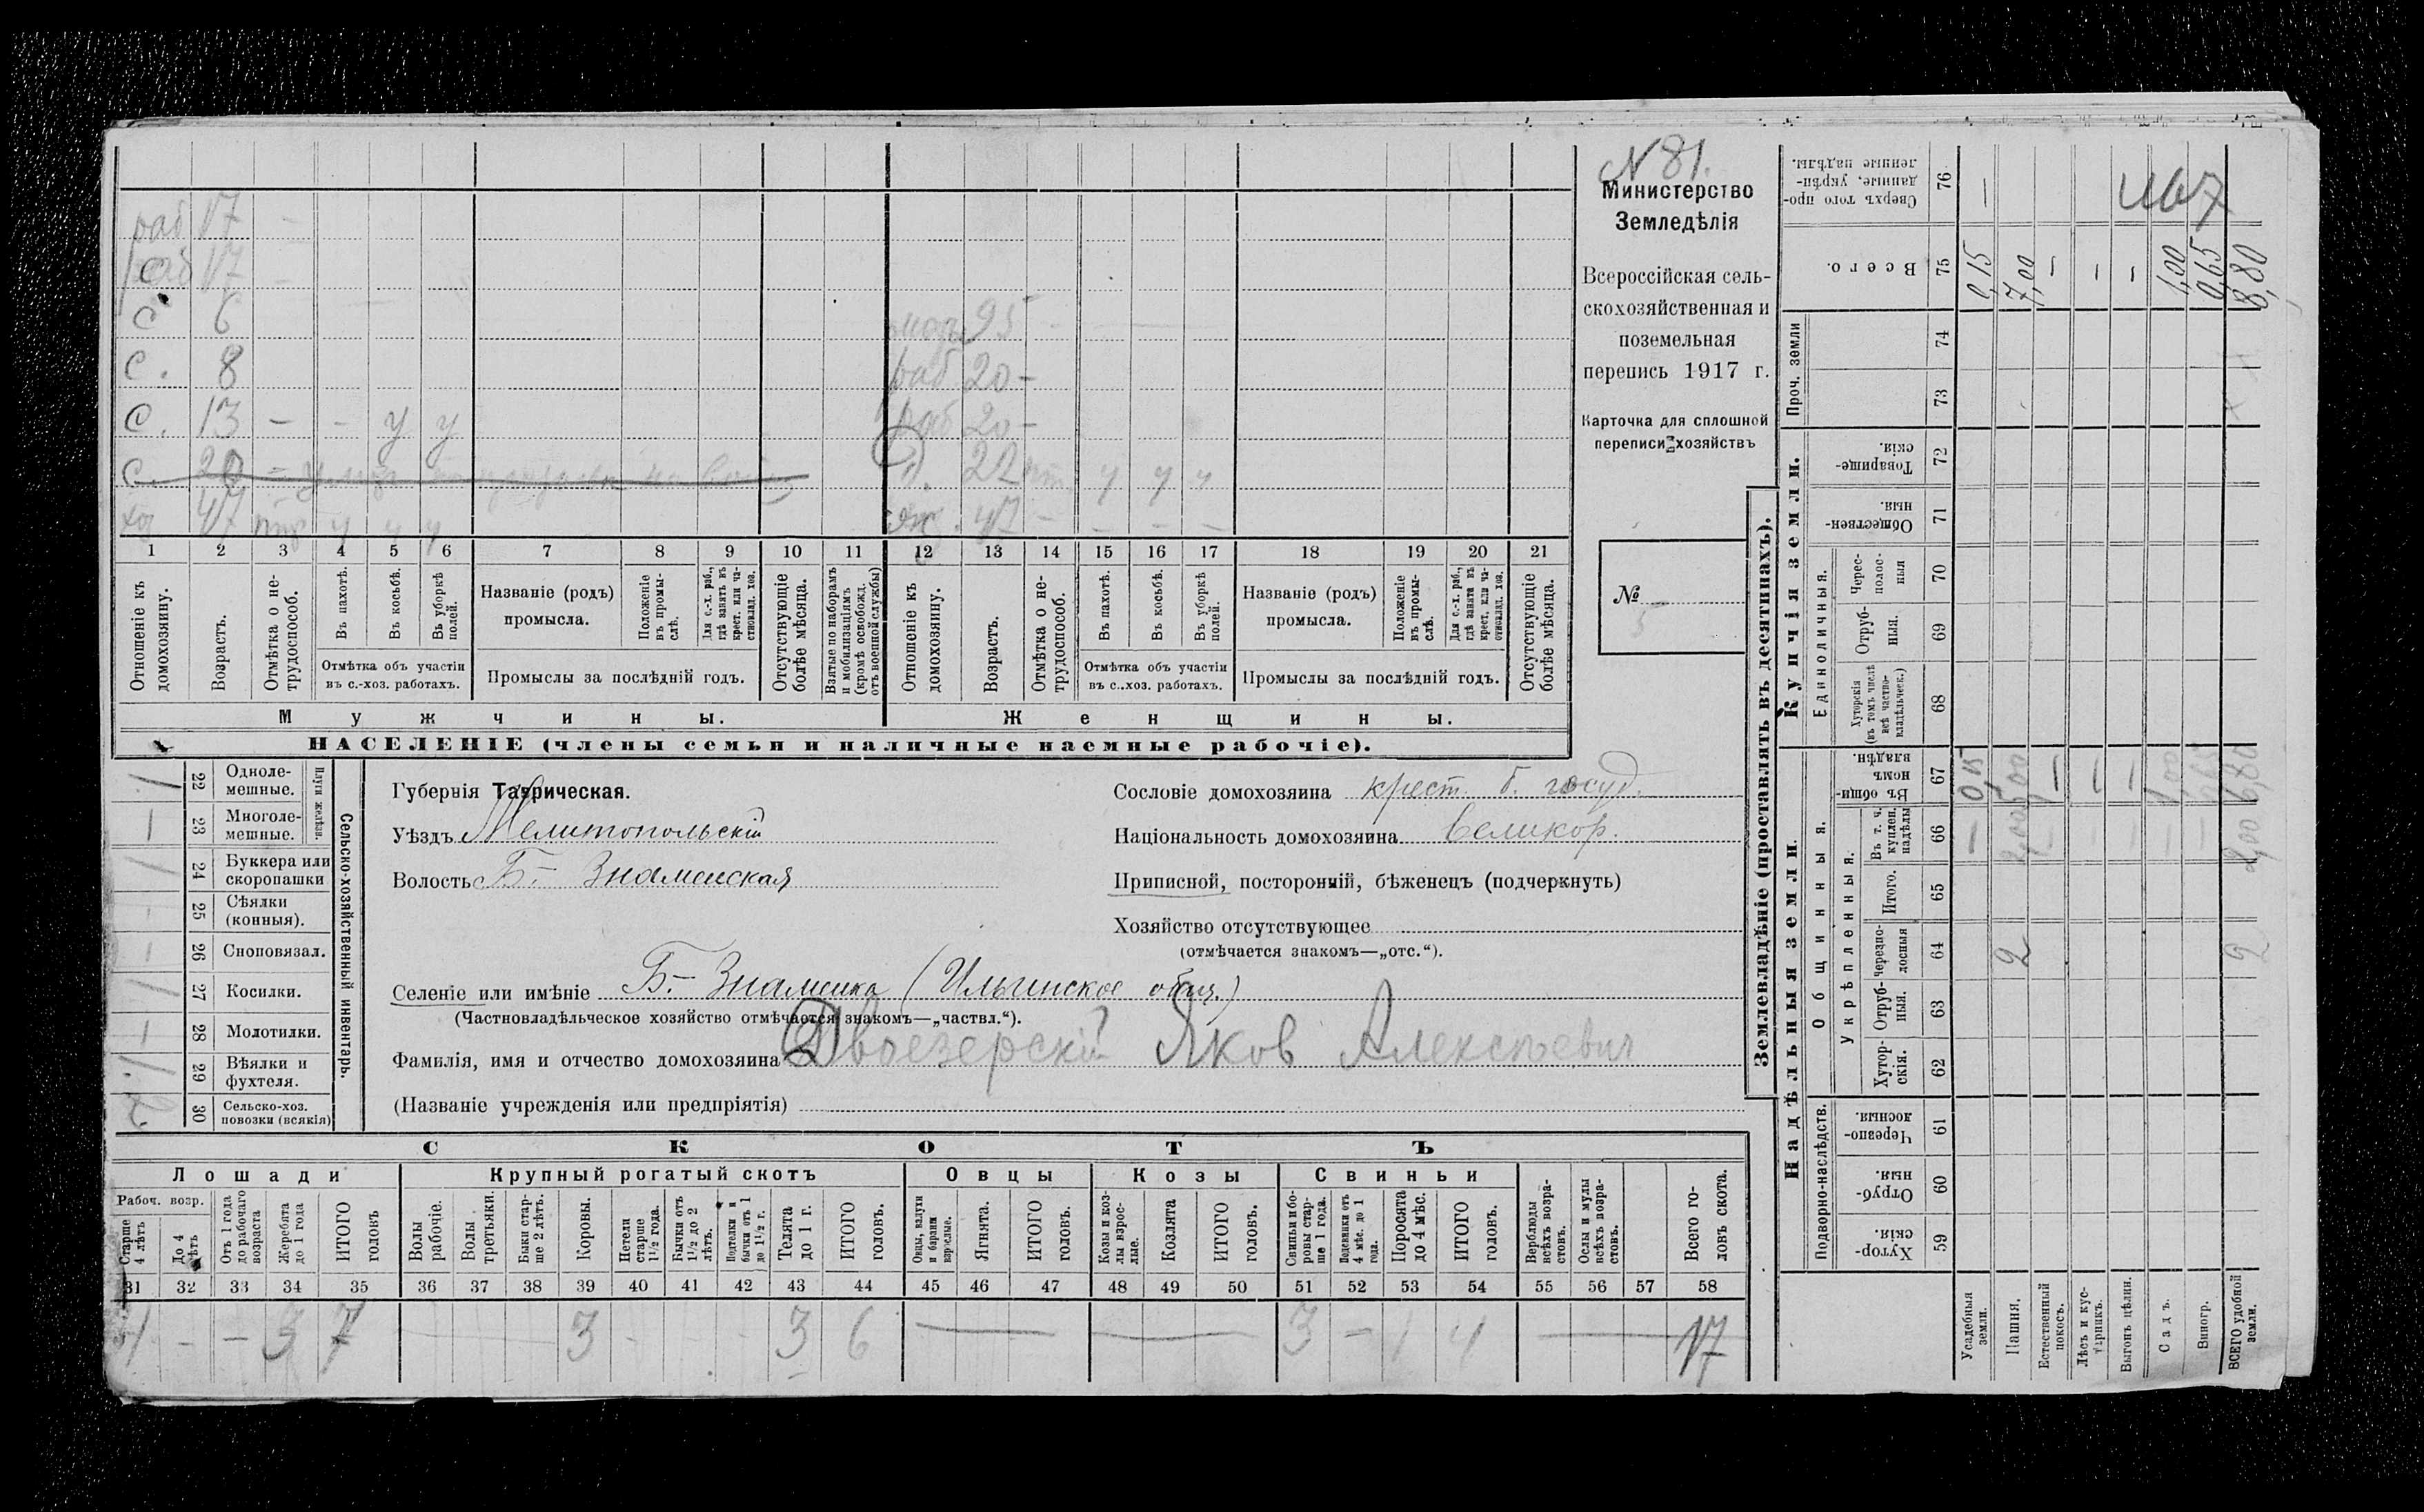 N 81.
Министерство
Земледѣлія
Всероссійская сель-
скохозяйственная и
поземельная
перепись 1917 г.
Карточка для сплошной
переписи хозяйствъ
№
раб 17 -
раб 17
с 6
с. 8
с. 13 - - у у
с. 20
хоз 47 у у у
95 -
раб. 20 -
раб 20 -
22 у у у
47 - - - -
1 2 3 4 5 6 7 8 9 10 11 12 13 14 15 16 17 18 19 20 21
Отношеніе къ домохозяину.
Возрастъ.
Отмѣтка о не-трудоспособ.
Въ пахотѣ.
Въ косьбѣ.
Въ уборкѣ полей.
Отмѣтка объ участіи
въ с.-хоз. работахъ.
Названіе (родъ)
промысла.
Положеніе въ промы-слѣ.
Для с.-х. раб., гдѣ занятъ въ крест. или ча-стновлад. хоз.
Промыслы за послѣдній годъ.
Отсутствующіе болѣе мѣсяца.
Взятые по наборамъ и мобилизаціямъ (кромѣ освобожд. отъ военной службы)
Отношеніе къ домохозяину.
Возрастъ.
Отмѣтка о не-трудоспособ.
Въ пахотѣ.
Въ косьбѣ.
Въ уборкѣ полей.
Отмѣтка объ участіи
въ с.-хоз. работахъ.
Названіе (родъ)
промысла.
Положеніе въ промы-слѣ.
Для с.-х. раб., гдѣ занята въ крест. или ча-стновлад. хоз.
Промыслы за послѣдній годъ.
Отсутствующіе болѣе мѣсяца.
Мужчины.
Женщины.
НАСЕЛЕНІЕ (члены семьи и наличные наемные рабочіе).
Сельско-хозяйственный инвентарь.
Плуги желѣзн.
1 22 Одноле-мешные.
1 23 Многоле-мешные.
1 24 Буккера или скоропашки
25 Сѣялки (конныя).
1 26 Сноповязал.
1 27 Косилки.
1 28 Молотилки.
1 29 Вѣялки и фухтеля.
2 30 Сельско-хоз. повозки (всякія)
Губернія Таврическая.
Уѣздъ Мелитопольскій
Волость Б.- Знаменская
Сословіе домохозяина крест. б. госуд.
Національность домохозяина великор.
Приписной, посторонній, бѣженецъ (подчеркнуть)
Хозяйство отсутствующее
(отмѣчается знакомъ—„отс.“).
Селеніе или имѣніе Б.- Знаменка (Ильинское общ.)
(Частновладѣльческое хозяйство отмѣчается знакомъ—„частвл.“).
Фамилія, имя и отчество домохозяина Двоезерскій Яков Алексѣевич
(Названіе учрежденія или предпріятія)
СКОТЪ
Лошади
Крупный рогатый скотъ
Овцы
Козы
Свиньи
Рабоч. возр.
Старше 4 лѣтъ
До 4 лѣтъ
Отъ 1 года до рабочаго возраста
Жеребята до 1 года
ИТОГО головъ
Волы рабочіе.
Волы третьяки.
Быки стар-ше 2 лѣтъ.
Коровы.
Нетели старше 1½ года.
Бычки отъ 1½ до 2 лѣтъ.
Подтелки и бычки отъ 1 до 1½ г.
Телята до 1 г.
ИТОГО головъ.
Овцы, валухи и бараны взрослые.
Ягнята.
ИТОГО головъ.
Козы и коз-лы взрос-лые.
Козлята
ИТОГО головъ.
Свиньи и бо-ровы стар-ше 1 года.
Подсвинки отъ 4 мѣс. до 1 года.
Поросята до 4 мѣс.
ИТОГО головъ.
Верблюды всѣхъ возра-стовъ.
Ослы и мулы всѣхъ возра-стовъ.
Всего го-ловъ скота.
31 32 33 34 35 36 37 38 39 40 41 42 43 44 45 46 47 48 49 50 51 52 53 54 55 56 57 58
4 - - 3 7 3 - - - 3 6 3 - 1 4 17
Землевладѣніе (проставлять въ десятинахъ).
Надѣльныя земли.
Купчія земли.
Проч. земли
Подворно-наслѣдств.
Общинныя.
Укрѣпленныя.
Единоличныя.
Хутор-скія. 59
Отруб-ныя. 60
Черезпо-лосныя. 61
Хутор-скія. 62
Отруб-ныя. 63
Черезпо-лосныя 64
Итого. 65
Въ т. ч. куплен. надѣлы 66
Въ общин-номъ владѣн. 67
Хуторскія (въ томъ числѣ всѣ частно-владѣльческ.) 68
Отруб-ныя. 69
Черес-полос-ныя 70
Обществен-ныя. 71
Товарище-скія. 72
73
74
Всего. 75
Сверхъ того про-данные, укрѣп-ленные надѣлы. 76
Усадебныя земли. - 0,15 0,15 -
Пашня. 2 7,00
Естественный покосъ. - -
Лѣсъ и кус-тарникъ. - -
Выгонъ цѣлин. - -
Садъ. 1,00 1,00
Виногр. 0,65 0,65
ВСЕГО удобной земли. 2 6,80 8,80